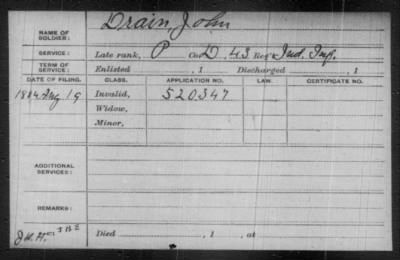 NAME OF SOLDIER: Drain, John
SERVICE: Late rank, P Co. D, 43 Reg't Ind. Inf.
TERM OF SERVICE: Enlisted , 1 Discharged , 1
DATE OF FILING. CLASS. APPLICATION NO. LAW. CERTIFICATE NO.
1884 Aug 19 Invalid, 520.347
Widow,
Minor,
ADDITIONAL SERVICES:
REMARKS:
Died , 1 , at